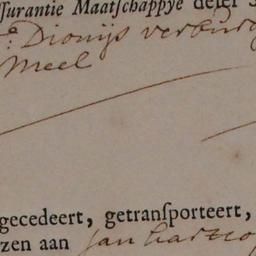 ſurantie Maatſchappye deſer
Dionijs verburg
Meel
gecedeert, getranſporteert,
zen aan Jan